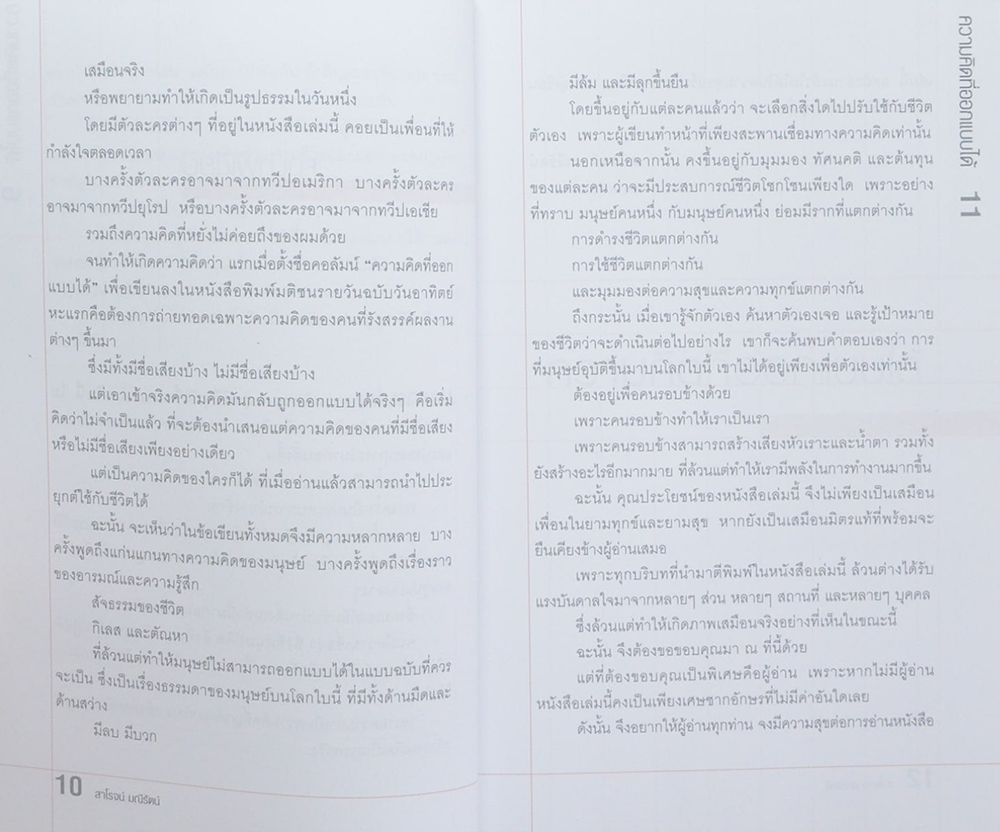 เสมือนจริง
หรือพยายามทำให้เกิดเป็นรูปธรรมในวันหนึ่ง
โดยมีตัวละครต่างๆ ที่อยู่ในหนังสือเล่มนี้ คอยเป็นเพื่อนที่ให้
กำลังใจตลอดเวลา
บางครั้งตัวละครอาจมาจากทวีปอเมริกา บางครั้งตัวละคร
อาจมาจากทวีปยุโรป หรือบางครั้งตัวละครอาจมาจากทวีปเอเชีย
รวมถึงความคิดที่หยั่งไม่ค่อยถึงของผมด้วย
จนทำให้เกิดความคิดว่า แรกเมื่อตั้งชื่อคอลัมน์ “ความคิดที่ออก
แบบได้” เพื่อเขียนลงในหนังสือพิมพ์มติชนรายวันฉบับวันอาทิตย์
หะแรกคือต้องการถ่ายทอดเฉพาะความคิดของคนที่รังสรรค์ผลงาน
ต่างๆ ขึ้นมา
ซึ่งมีทั้งมีชื่อเสียงบ้าง ไม่มีชื่อเสียงบ้าง
แต่เอาเข้าจริงความคิดมันกลับถูกออกแบบได้จริงๆ คือเริ่ม
คิดว่าไม่จำเป็นแล้ว ที่จะต้องนำเสนอแต่ความคิดของคนที่มีชื่อเสียง
หรือไม่มีชื่อเสียงเพียงอย่างเดียว
แต่เป็นความคิดของใครก็ได้ ที่เมื่ออ่านแล้วสามารถนำไปประ
ยุกต์ใช้กับชีวิตได้
ฉะนั้น จะเห็นว่าในข้อเขียนทั้งหมดจึงมีความหลากหลาย บาง
ครั้งพูดถึงแก่นแกนทางความคิดของมนุษย์ บางครั้งพูดถึงเรื่องราว
ของอารมณ์และความรู้สึก
สัจธรรมของชีวิต
กิเลส และตัณหา
ที่ล้วนแต่ทำให้มนุษย์ไม่สามารถออกแบบได้ในแบบฉบับที่ควร
จะเป็น ซึ่งเป็นเรื่องธรรมดาของมนุษย์บนโลกใบนี้ ที่มีทั้งด้านมืดและ
ด้านสว่าง
มีลบ มีบวก
10 สาโรจน์ มณีรัตน์
ความคิดที่ออกแบบได้ 11
มีล้ม และมีลุกขึ้นยืน
โดยขึ้นอยู่กับแต่ละคนแล้วว่า จะเลือกสิ่งใดไปปรับใช้กับชีวิต
ตัวเอง เพราะผู้เขียนทำหน้าที่เพียงสะพานเชื่อมทางความคิดเท่านั้น
นอกเหนือจากนั้น คงขึ้นอยู่กับมุมมอง ทัศนคติ และต้นทุน
ของแต่ละคน ว่าจะมีประสบการณ์ชีวิตโชกโชนเพียงใด เพราะอย่าง
ที่ทราบ มนุษย์คนหนึ่ง กับมนุษย์คนหนึ่ง ย่อมมีรากที่แตกต่างกัน
การดำรงชีวิตแตกต่างกัน
การใช้ชีวิตแตกต่างกัน
และมุมมองต่อความสุขและความทุกข์แตกต่างกัน
ถึงกระนั้น เมื่อเขารู้จักตัวเอง ค้นหาตัวเองเจอ และรู้เป้าหมาย
ของชีวิตว่าจะดำเนินต่อไปอย่างไร เขาก็จะค้นพบคำตอบเองว่า การ
ที่มนุษย์อุบัติขึ้นมาบนโลกใบนี้ เขาไม่ได้อยู่เพียงเพื่อตัวเองเท่านั้น
ต้องอยู่เพื่อคนรอบข้างด้วย
เพราะคนรอบข้างทำให้เราเป็นเรา
เพราะคนรอบข้างสามารถสร้างเสียงหัวเราะและน้ำตา รวมทั้ง
ยังสร้างอะไรอีกมากมาย ที่ล้วนแต่ทำให้เรามีพลังในการทำงานมากขึ้น
ฉะนั้น คุณประโยชน์ของหนังสือเล่มนี้ จึงไม่เพียงเป็นเสมือน
เพื่อนในยามทุกข์และยามสุข หากยังเป็นเสมือนมิตรแท้ที่พร้อมจะ
ยืนเคียงข้างผู้อ่านเสมอ
เพราะทุกบริบทที่นำมาตีพิมพ์ในหนังสือเล่มนี้ ล้วนต่างได้รับ
แรงบันดาลใจมาจากหลายๆ ส่วน หลายๆ สถานที่ และหลายๆ บุคคล
ซึ่งล้วนแต่ทำให้เกิดภาพเสมือนจริงอย่างที่เห็นในขณะนี้
ฉะนั้น จึงต้องขอขอบคุณมา ณ ที่นี้ด้วย
แต่ที่ต้องขอบคุณเป็นพิเศษคือผู้อ่าน เพราะหากไม่มีผู้อ่าน
หนังสือเล่มนี้คงเป็นเพียงเศษซากอักษรที่ไม่มีค่าอันใดเลย
ดังนั้น จึงอยากให้ผู้อ่านทุกท่าน จงมีความสุขต่อการอ่านหนังสือ